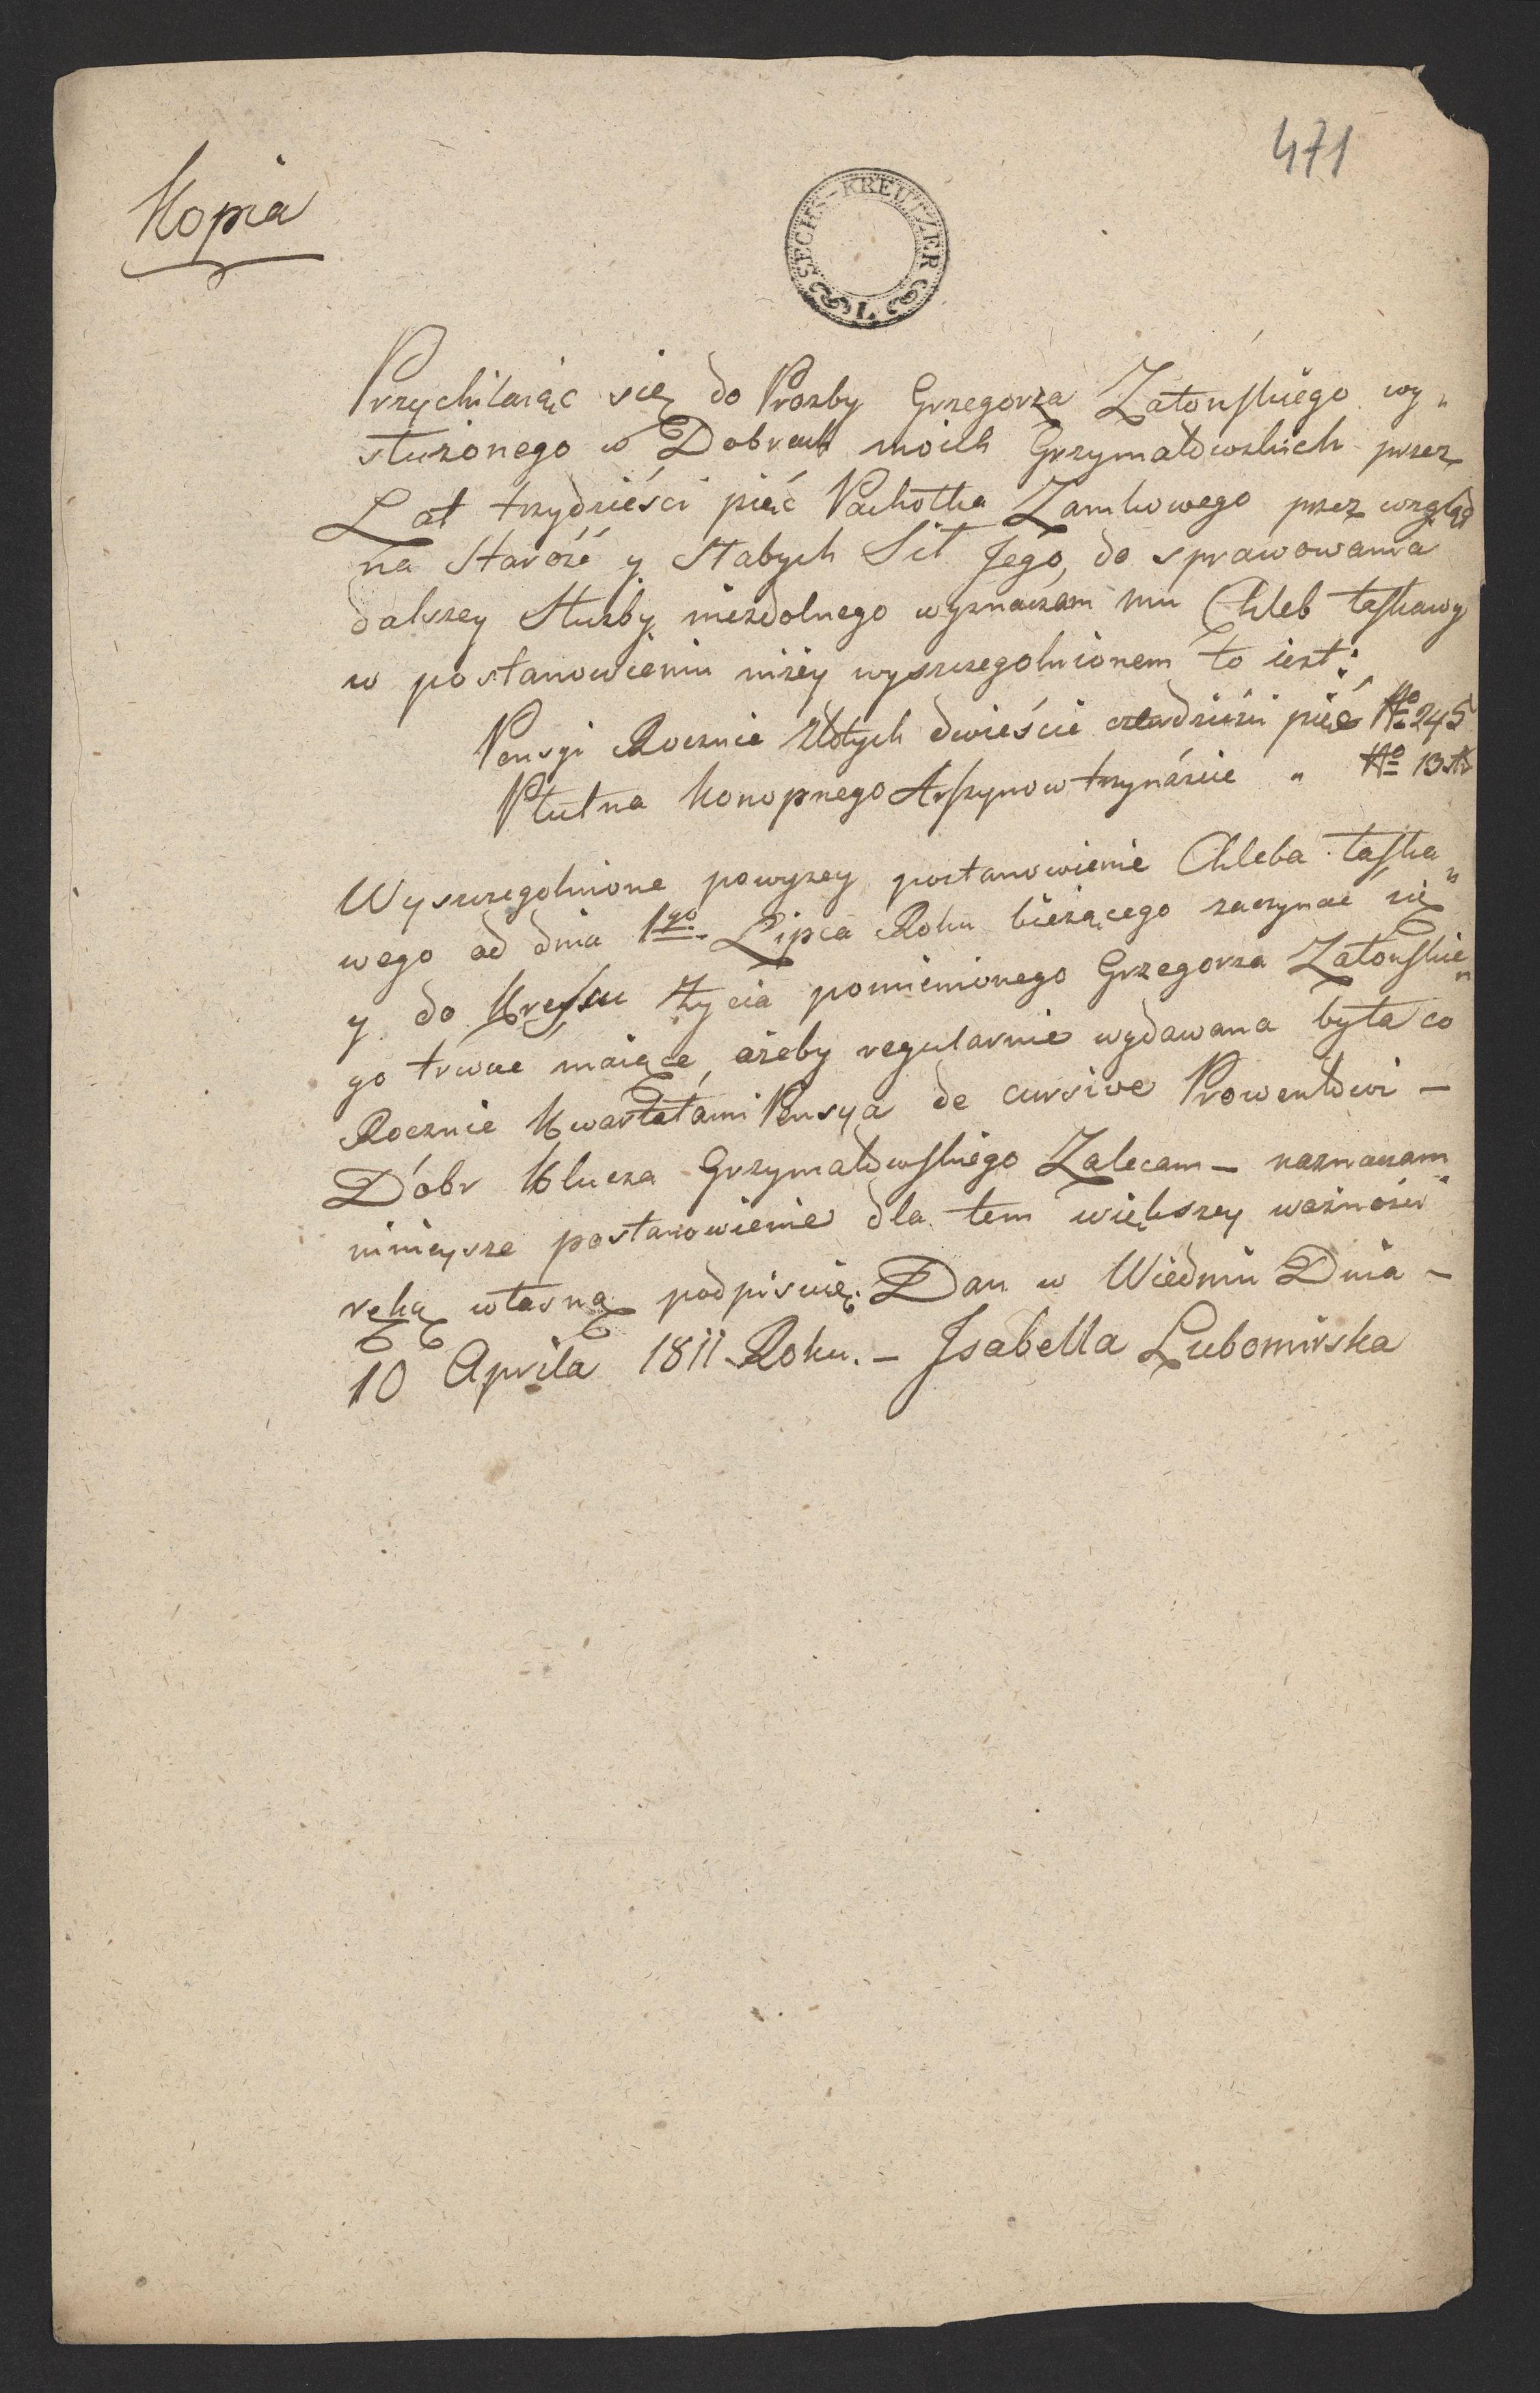 471
Kopia
SECHS-KREUTZER L
Przychilaiąc się do Prozby Grzegorza Zatonskiego wy„
służonego w Dobrach moich Grzymałowskich przez
Lat trzydzieści pięć Pachołka Zamkowego przez wzgląd
na Starość y Słabych Sił Jego, do sprawowania
dalszey Służby niezdolnego wyznaczam mu Chleb łaskawy
w postanowieniu niżey wyszczegolnionem to iest:
Pensyi Rocznie Złotych dwieście czterdzieści pięć No 245
Płutna Konopnego Arszynow trzynáście " No 13
Wyszczegolnione powyzey postanowienie Chleba łaska„
wego od dnia 1go Lipca Roku bieżącego zaczynać się
y do Kresu Życia pomienionego Grzegorza Zatonskie„
go trwać maiące, ażeby regularnie wydawana była co
Rocznie Kwartałami Pensya de cursive Prowentowi –
Dóbr Klucza Grzymałowskiego Zalecam –
ninieysze postanowienie dla tem większey ważności
ręką własną podpisuię. Dan w Wiedniu Dnia –
10 Aprila 1811 Roku. – Isabella Lubomirska